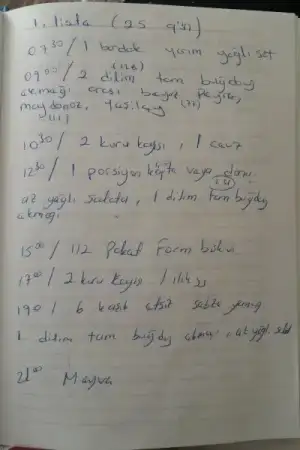 1. liste (25 gün)
07 30 / 1 bardak yarım yağlı süt
09 00 / 2 dilim tam buğday
ekmeği arası beyaz peynir,
maydanoz,
10 30 / 2 kuru kayısı, 1 ceviz
12 30 / 1 porsiyon köfte veya
az yağlı salata, 1 dilim tam buğday
ekmeği
15 00 / 1/2 Paket Form bisküvi
17 00 / 2 kuru kayısı
19 0 / 6 kaşık etsiz sebze yemeği
1 dilim tam buğday ekmeği, az yağlı
21 00 Meyve